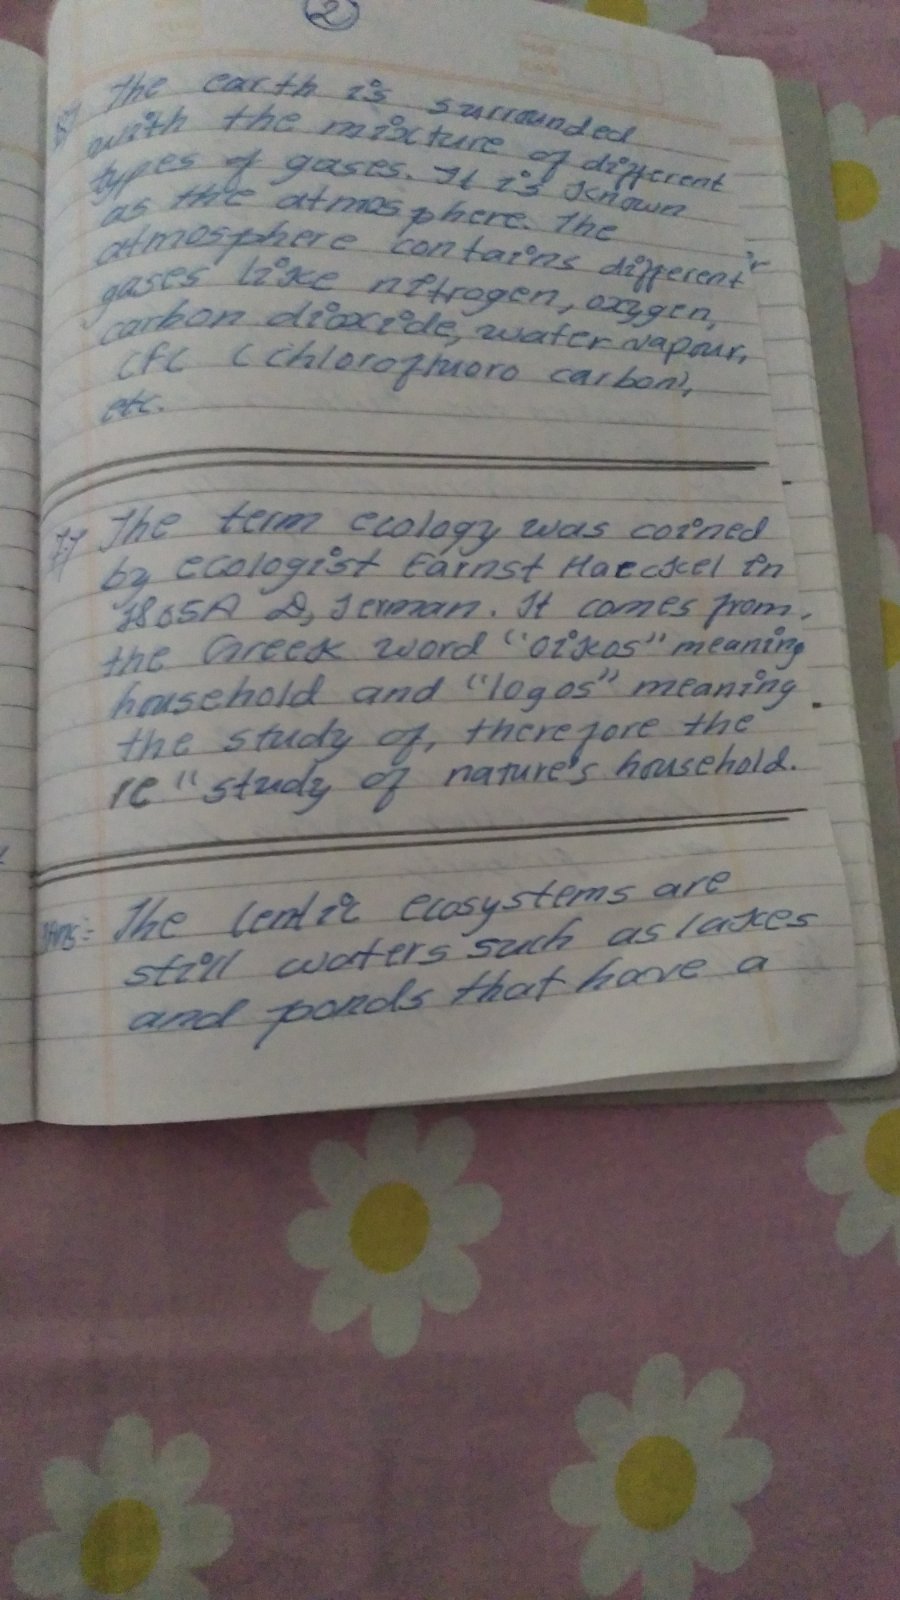 2
The earth is surrounded
with the mixture of different
types of gases. It is known
as the atmosphere. The
atmosphere contains different
gases like nitrogen, oxygen,
carbon dioxide, water vapour,
CFC (chlorofluoro carbon),
etc.
7.7 The term ecology was coined
by ecologist Earnst Haeckel in
1865A D, German. It comes from
the Greek word "oikos" meaning
household and "logos" meaning
the study of, therefore the
re "study of nature's household.
Ans:= The lentic ecosystems are
still waters such as lakes
and ponds that have a